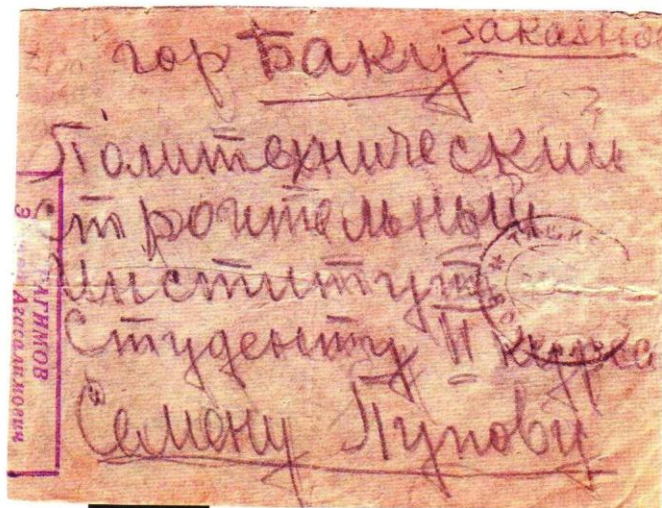 заказное
гор Баку
Политехнический
строительный
Институт
Студенту II курса
Семену Пупову
Агасалихович